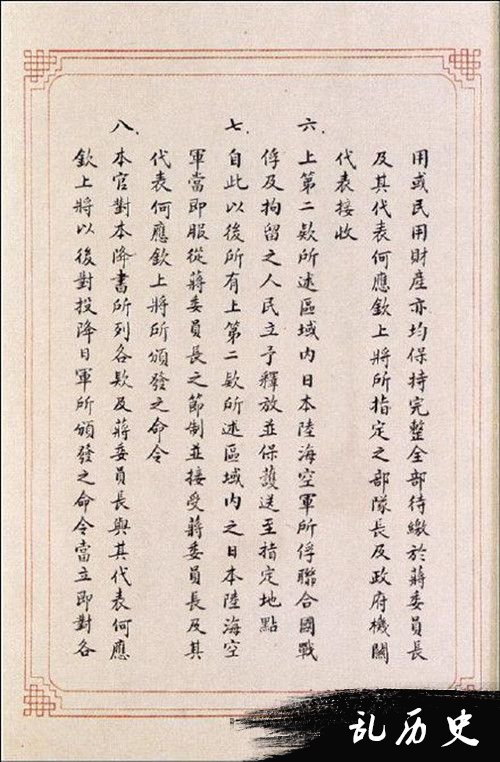 用或民用財產亦均保持完整全部待繳於蔣委員長
及其代表何應欽上將所指定之部隊長及政府機關
代表接收
六.上第二欵所述區域內日本陸海空軍所俘聯合國戰
俘及拘留之人民立予釋放並保護送至指定地點
七.自此以後所有上第二欵所述區域內之日本陸海空
軍當即服從蔣委員長之節制並接受蔣委員長及其
代表何應欽上將所頒發之命令
八.本官對本降書所列各欵及蔣委員長與其代表何應
欽上將以後對投降日軍所頒發之命令當立即對各
乱历史